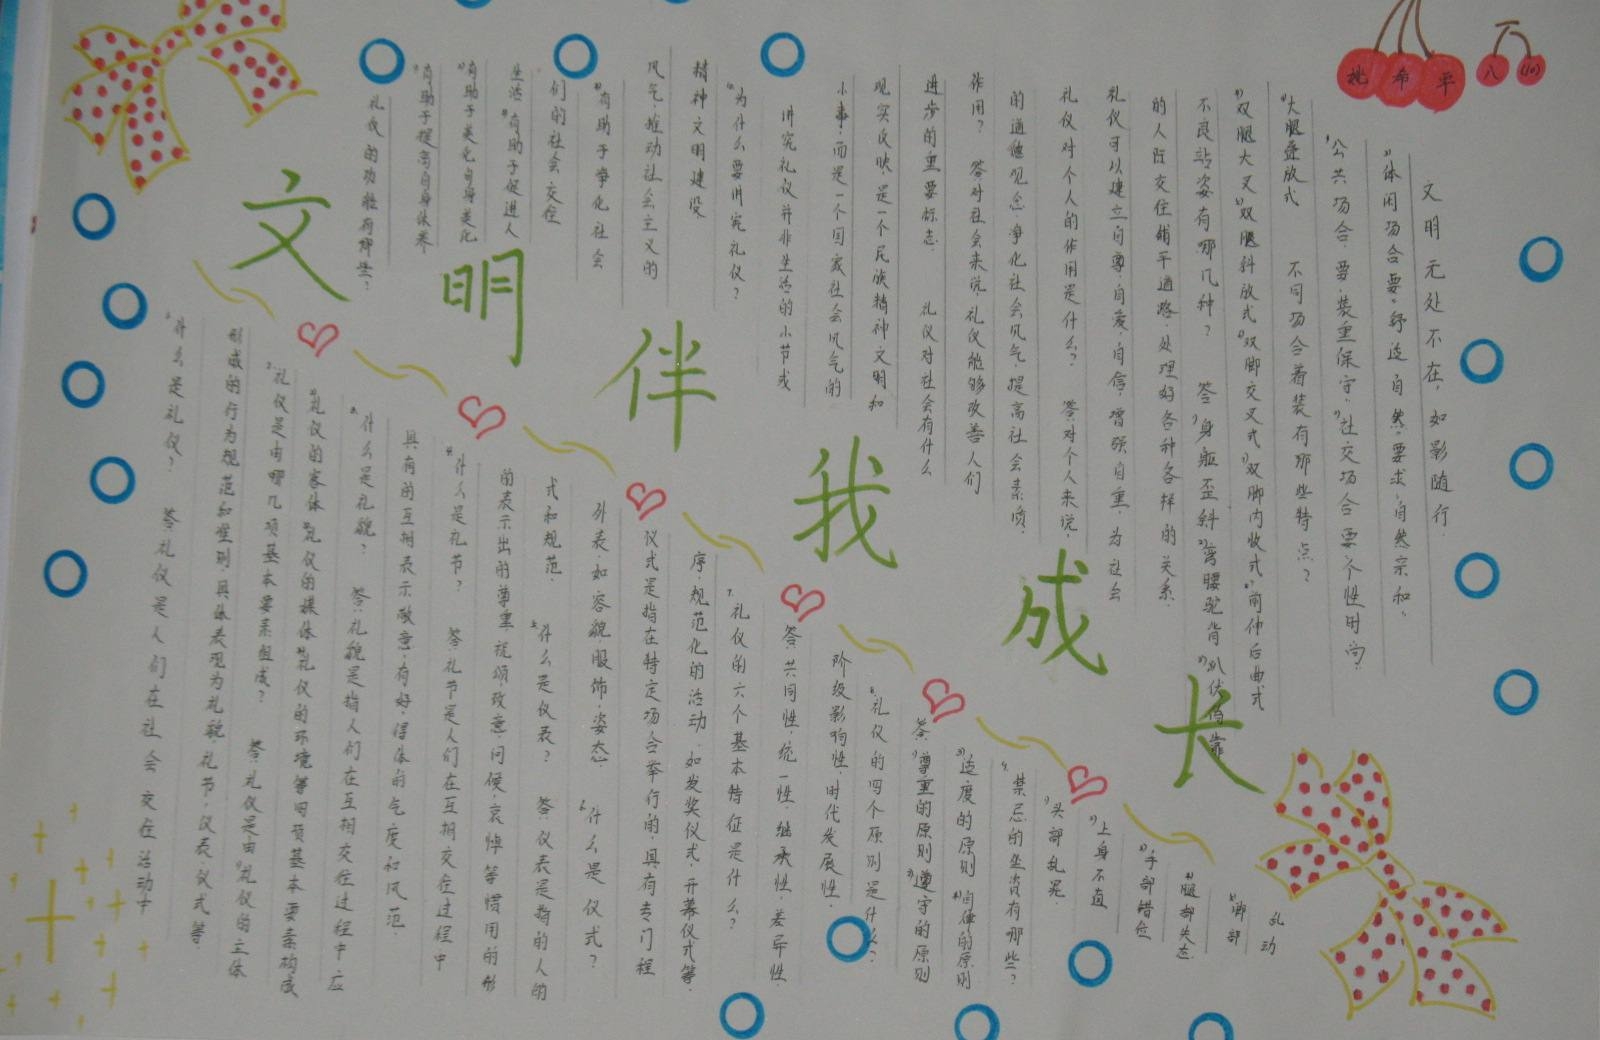 文明伴我成长
希平
八(10)
1.什么是礼仪? 答.礼仪是人们在社会交往活动中
形成的行为规范和准则.具体表现为礼貌.礼节.仪表.仪式等.
2.礼仪是由哪几项基本要素组成? 答.礼仪是由1)礼仪的主体
2)礼仪的客体3)礼仪的媒体4)礼仪的环境等四项基本要素构成
3.什么是礼貌? 答.礼貌是指人们在互相交往过程中应
具有的互相表示敬意.友好.得体的气度和风范.
4.什么是礼节? 答.礼节是人们在互相交往过程中
的表示出的尊重.祝颂.致意.问候.哀悼等惯用的形
式和规范. 5.什么是仪表? 答.仪表是指的人的
外表.如容貌服饰.姿态. 6.什么是仪式?
仪式是指在特定场合举行的.具有专门程
序.规范化的活动.如发奖仪式.开幕仪式等.
7.礼仪的六个基本特征是什么?
答.共同性.统一性.继承性.差异性.
阶级影响性.时代发展性.
8.礼仪的四个原则是什么?
答.1)尊重的原则2)遵守的原则
3)适度的原则4)自律的原则
9.禁忌的坐姿有哪些?
1)头部乱晃
2)上身不直
3)手部错位
4)腿部失态
5)脚部
乱动
礼仪的功能有哪些?
1)有助于提高自身修养
2)有助于美化自身美化
生活3)有助于促进人
们的社会交往
4)有助于净化社会
风气推动社会主义的
精神文明建设
为什么要讲究礼仪?
讲究礼仪并非生活的小节或
小事.而是一个国家社会风气的
现实反映.是一个民族精神文明和
进步的重要标志. 礼仪对社会有什么
作用? 答对社会来说.礼仪能够改善人们
的道德观念.净化社会风气.提高社会素质.
礼仪对个人的作用是什么? 答.对个人来说.
礼仪可以建立自尊.自爱.自信.增强自重.为社会
的人际交往铺平道路.处理好各种各样的关系.
不良站姿有哪几种? 答.1)身躯歪斜2)弯腰驼背3)趴伏倚靠
双腿大叉 双腿斜放式 双脚交叉式 双脚内收式 前伸后曲式
大腿叠放式 不同场合着装有那些特点?
1)公共场合.要.装重保守.2)社交场合.要个性时尚.
3)休闲场合要舒适自然.要求.自然宗和.
文明无处不在,如影随行.